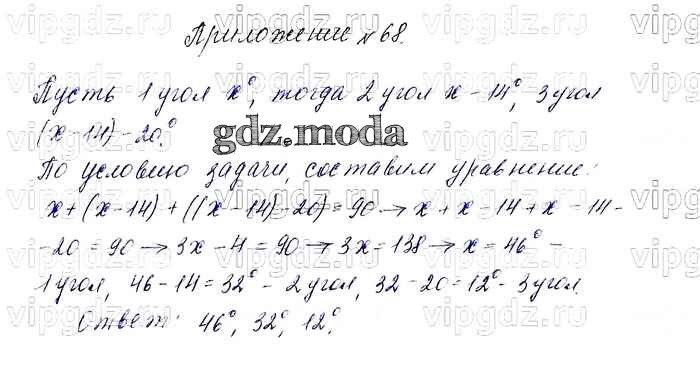 vipgdz.ru vipgdz.ru vipgdz.ru vipgdz.ru
Приложение №68.
Пусть 1 угол x°, тогда 2 угол x - 14°, 3 угол
(x-14)-20°.
gdz.moda
По условию задачи, составим уравнение:
x+(x-14)+((x-14)-20)=90 → x+x-14+x-14-
-20=90 → 3x-4=90 → 3x=138 → x=46° -
1 угол, 46-14=32° - 2 угол, 32-20=12° - 3 угол.
Ответ: 46°, 32°, 12°.